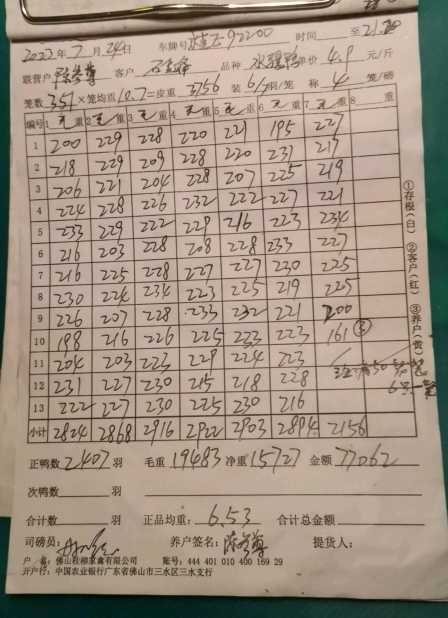 2022年7月24日 车牌号 92200 时间 至21:
联营户 陈 客户 品种 水 鸭 单价 4.9 元/斤
笼数 351 ×笼均重 10.7 =皮重 3756 装 6/7 羽/笼 称 4 笼/磅
编号 1 毛重 2 毛重 3 毛重 4 毛重 5 毛重 6 毛重 7 毛重 8 重
1 200 229 228 220 221 195 227
2 218 229 209 228 220 231 217
3 206 221 204 228 207 225 219
4 224 228 226 232 222 227 221
5 233 229 222 229 216 223 234
6 216 203 228 208 228 233 227
7 216 225 228 227 227 230 225
8 230 224 234 223 225 219 225
9 226 207 228 233 232 221 200
10 198 216 226 225 233 223 161 ③
11 204 203 223 229 224 223
12 231 227 230 215 218 228
13 222 227 230 225 230 216
小计 2824 2868 2916 2922 2903 2894 2156
①存根(白) ②客户(红) ③养户(黄)
正鸭数 2407 羽 毛重 19483 净重 15727 金额 77062
次鸭数 羽
合计数 羽 正品均重: 6.53 合计总金额
司磅员: 养户签名: 陈 提货人:
户 名: 佛山 家禽有限公司 账号: 444 401 010 400 169 29
开户行: 中国农业银行广东省佛山市三水区三水支行